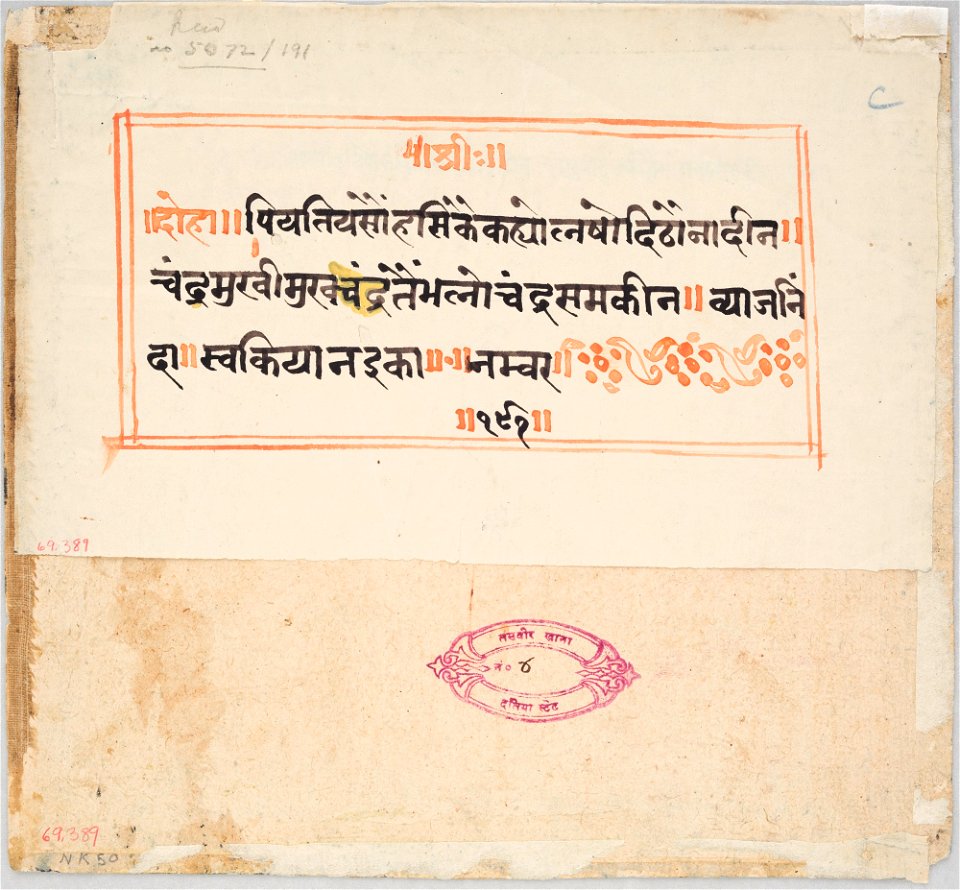 5072/191
C
॥श्रीः॥
॥दोहा॥ पियतियसौंहसिंकैकह्योलषोदिठोनादीन॥
चंद्रमुखीमुखचंद्रतैंभलोचंद्रसमकीन॥ व्याजनिं
दा॥ स्वकियानइका॥ नम्बर
॥१९१॥
69.389
तसवीर खाना
नं० ४
दतिया स्टेट
69.389
NK50